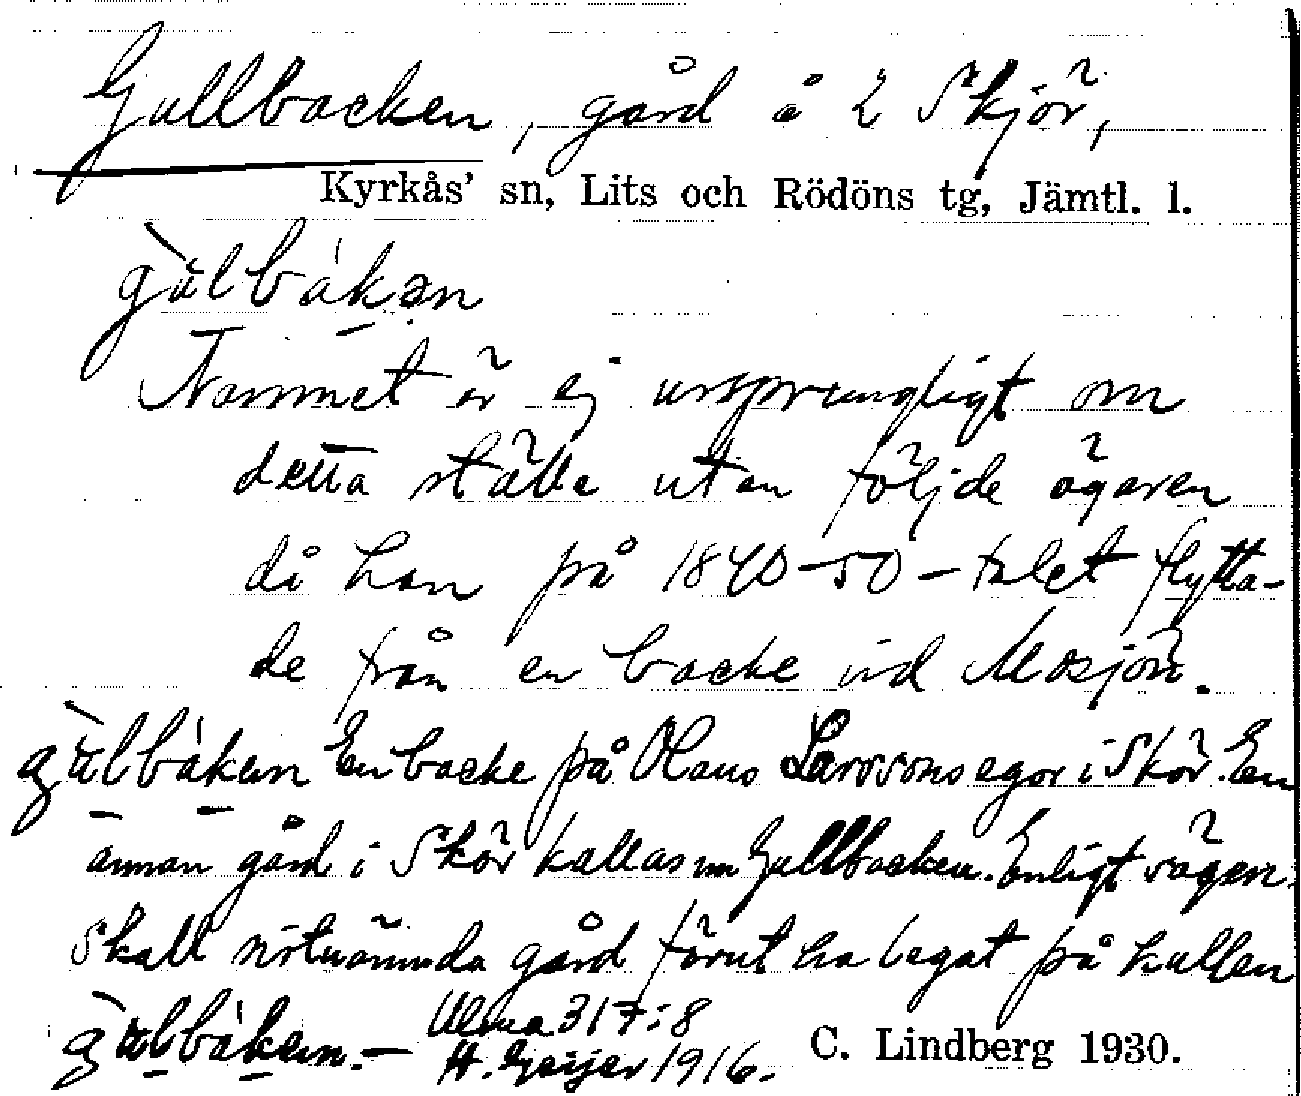 Gullbacken, gård å 2 Skjör,
Kyrkås' sn, Lits och Rödöns tg, Jämtl. l.
gùlbákən
Namnet är ej ursprungligt om
detta ställe utan följde ägaren
då han på 1840-50-talet flytta-
de från en backe vid Mosjön.
gùlbáken En backe på Olaus Larssons egor i Skör. En
annan gård i Skör kallas nu Gullbacken. Enligt sägen
skall sistnämnda gård förut ha legat på kullen
gùlbáken. — Ulma 317:8
H. Geijer 1916.
C. Lindberg 1930.